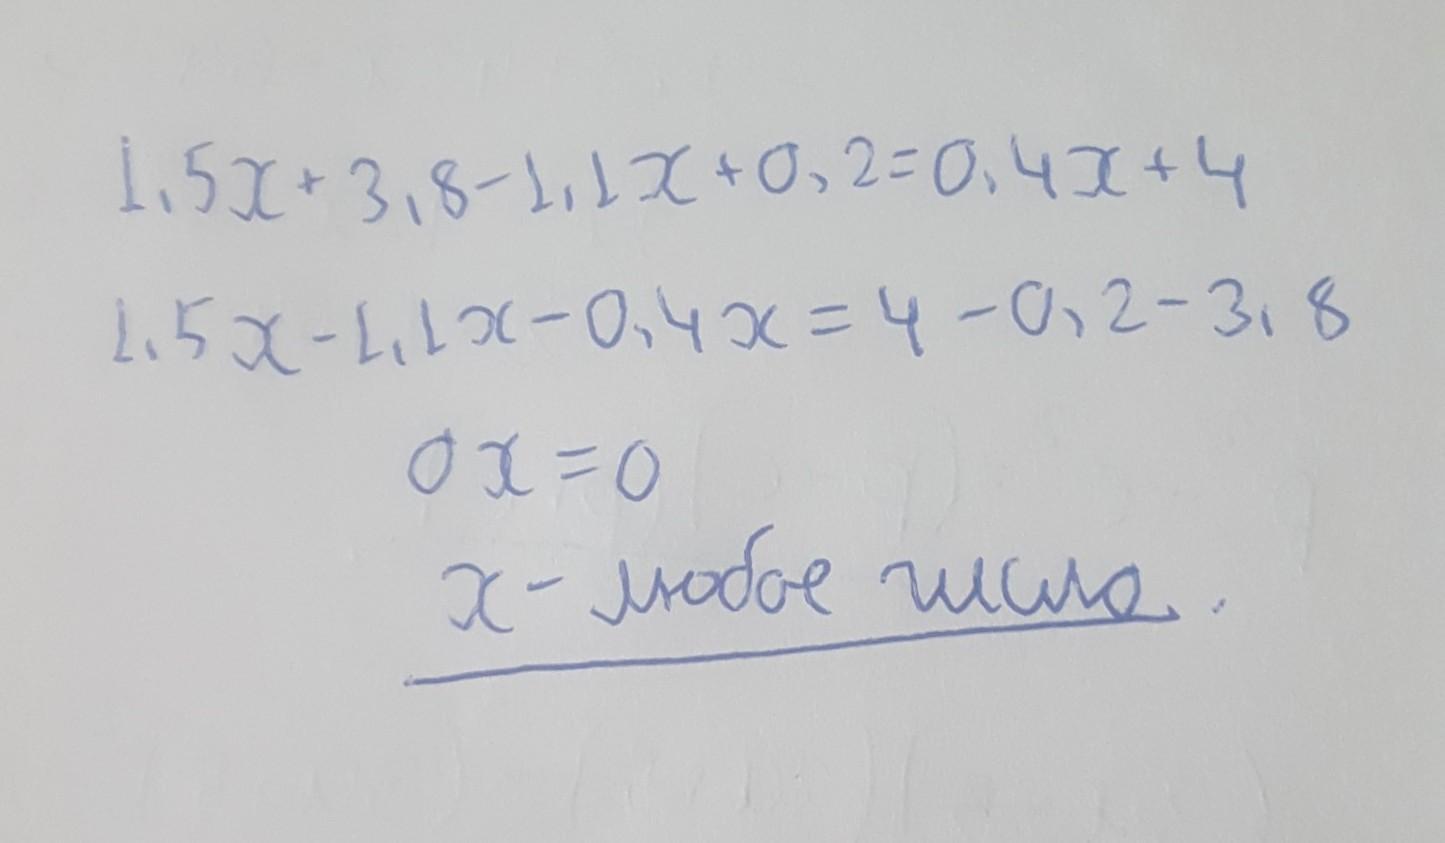 1,5x+3,8-1,1x+0,2=0,4x+4
1,5x-1,1x-0,4x=4-0,2-3,8
0x=0
x- любое число.